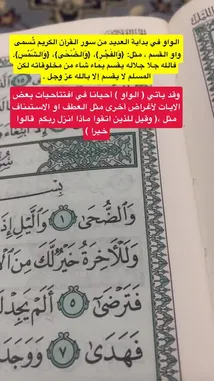 الواو في بداية العديد من سور القرآن الكريم تُسمى
واو القسم ، مثل: (وَالْفَجْرِ)، (وَالضُّحَى)، (وَالشَّمْسِ).
فالله جلا جلاله يقسم بماء شاء من مخلوقاته لكن
المسلم لا يقسم إلا بالله عز وجل .
وقد يأتي ( الواو ) احيانا في افتتاحيات بعض
الايات لأغراض اخرى مثل العطف او الاستئناف
مثل ،( وقيل للذين اتقوا ماذا انزل ربكم قالوا
خيرا )
وَالضُّحَىٰ ١ وَالَّيْلِ إِذَا
وَلَلْآخِرَةُ خَيْرٌ لَّكَ مِنَ
فَتَرْضَىٰٓ ٥ أَلَمْ يَجِدْكَ
فَهَدَىٰ ٧ وَوَجَدَ